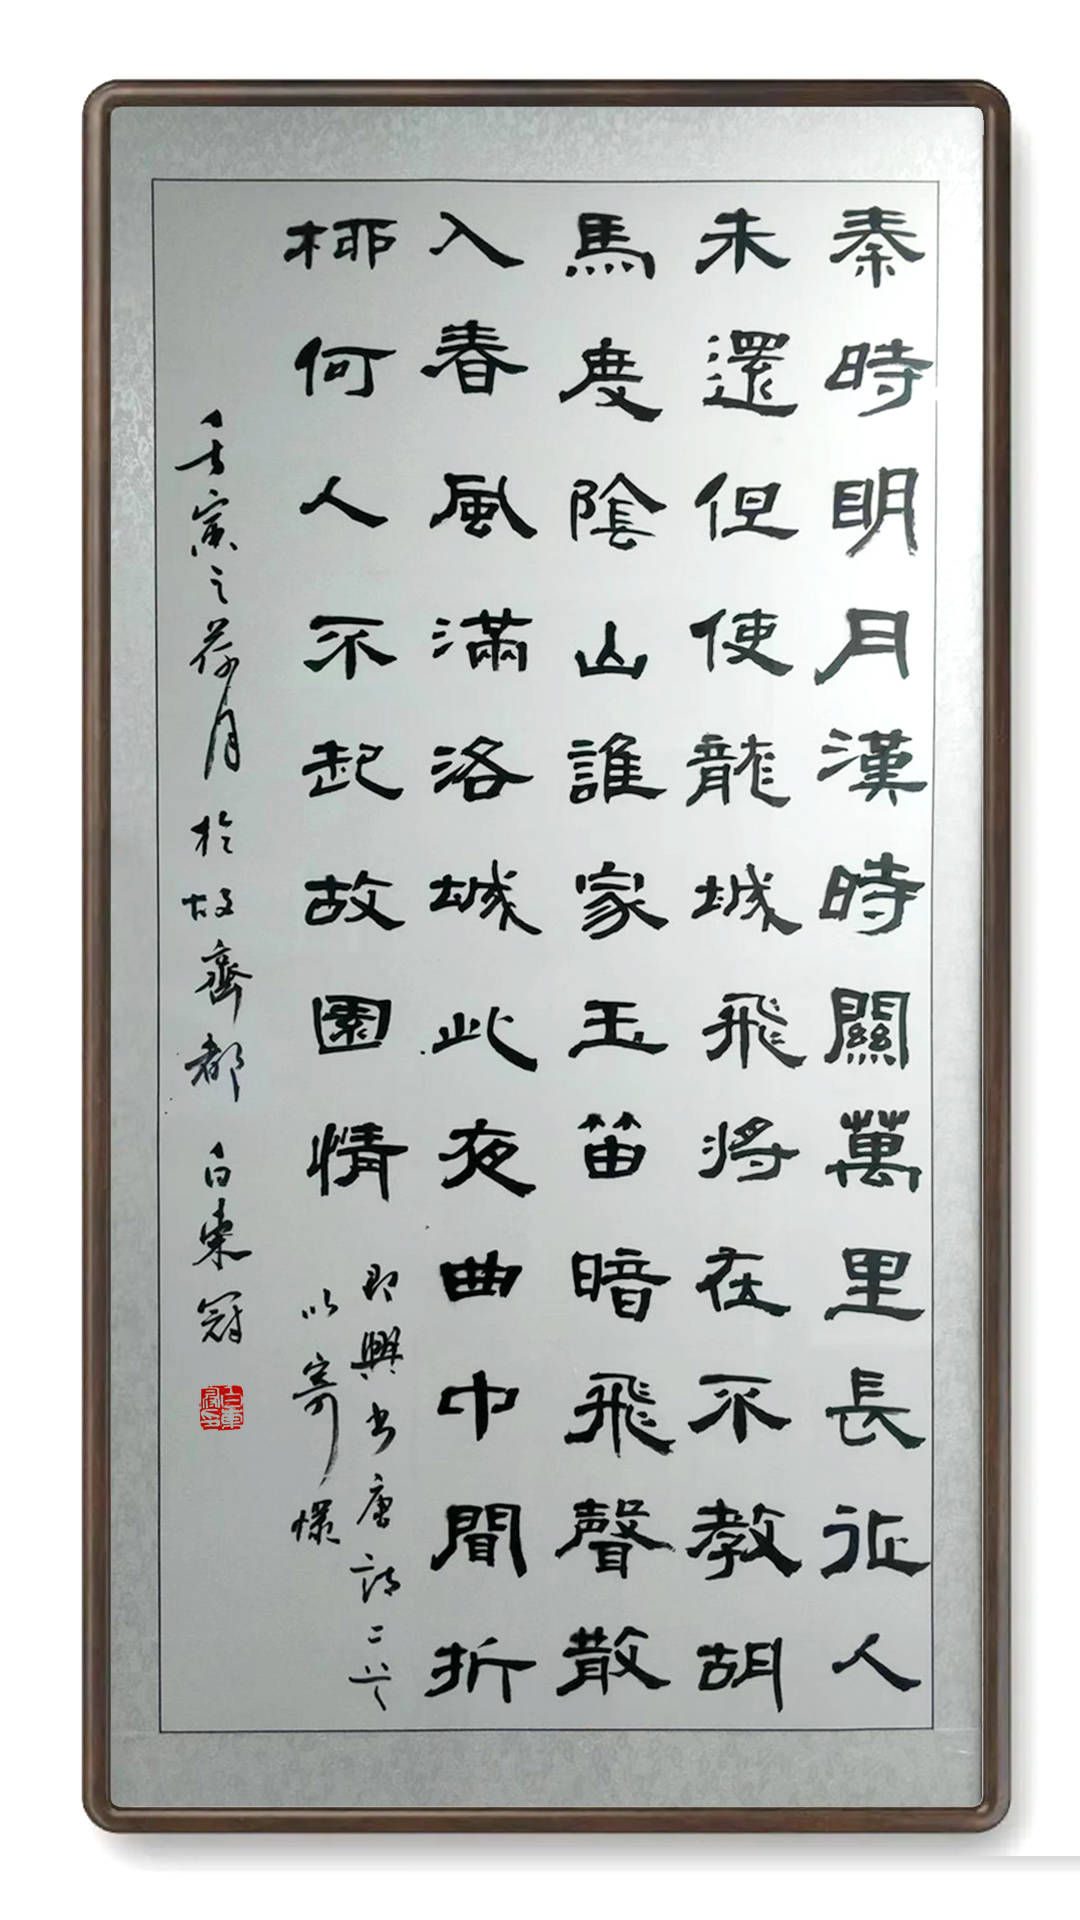 秦時明月漢時關萬里長征人
未還但使龍城飛將在不教胡
馬度陰山誰家玉笛暗飛聲散
入春風滿洛城此夜曲中聞折
柳何人不起故園情
即興書唐詩二首
以寄懷
壬寅之荷月於故齊都 白東冠